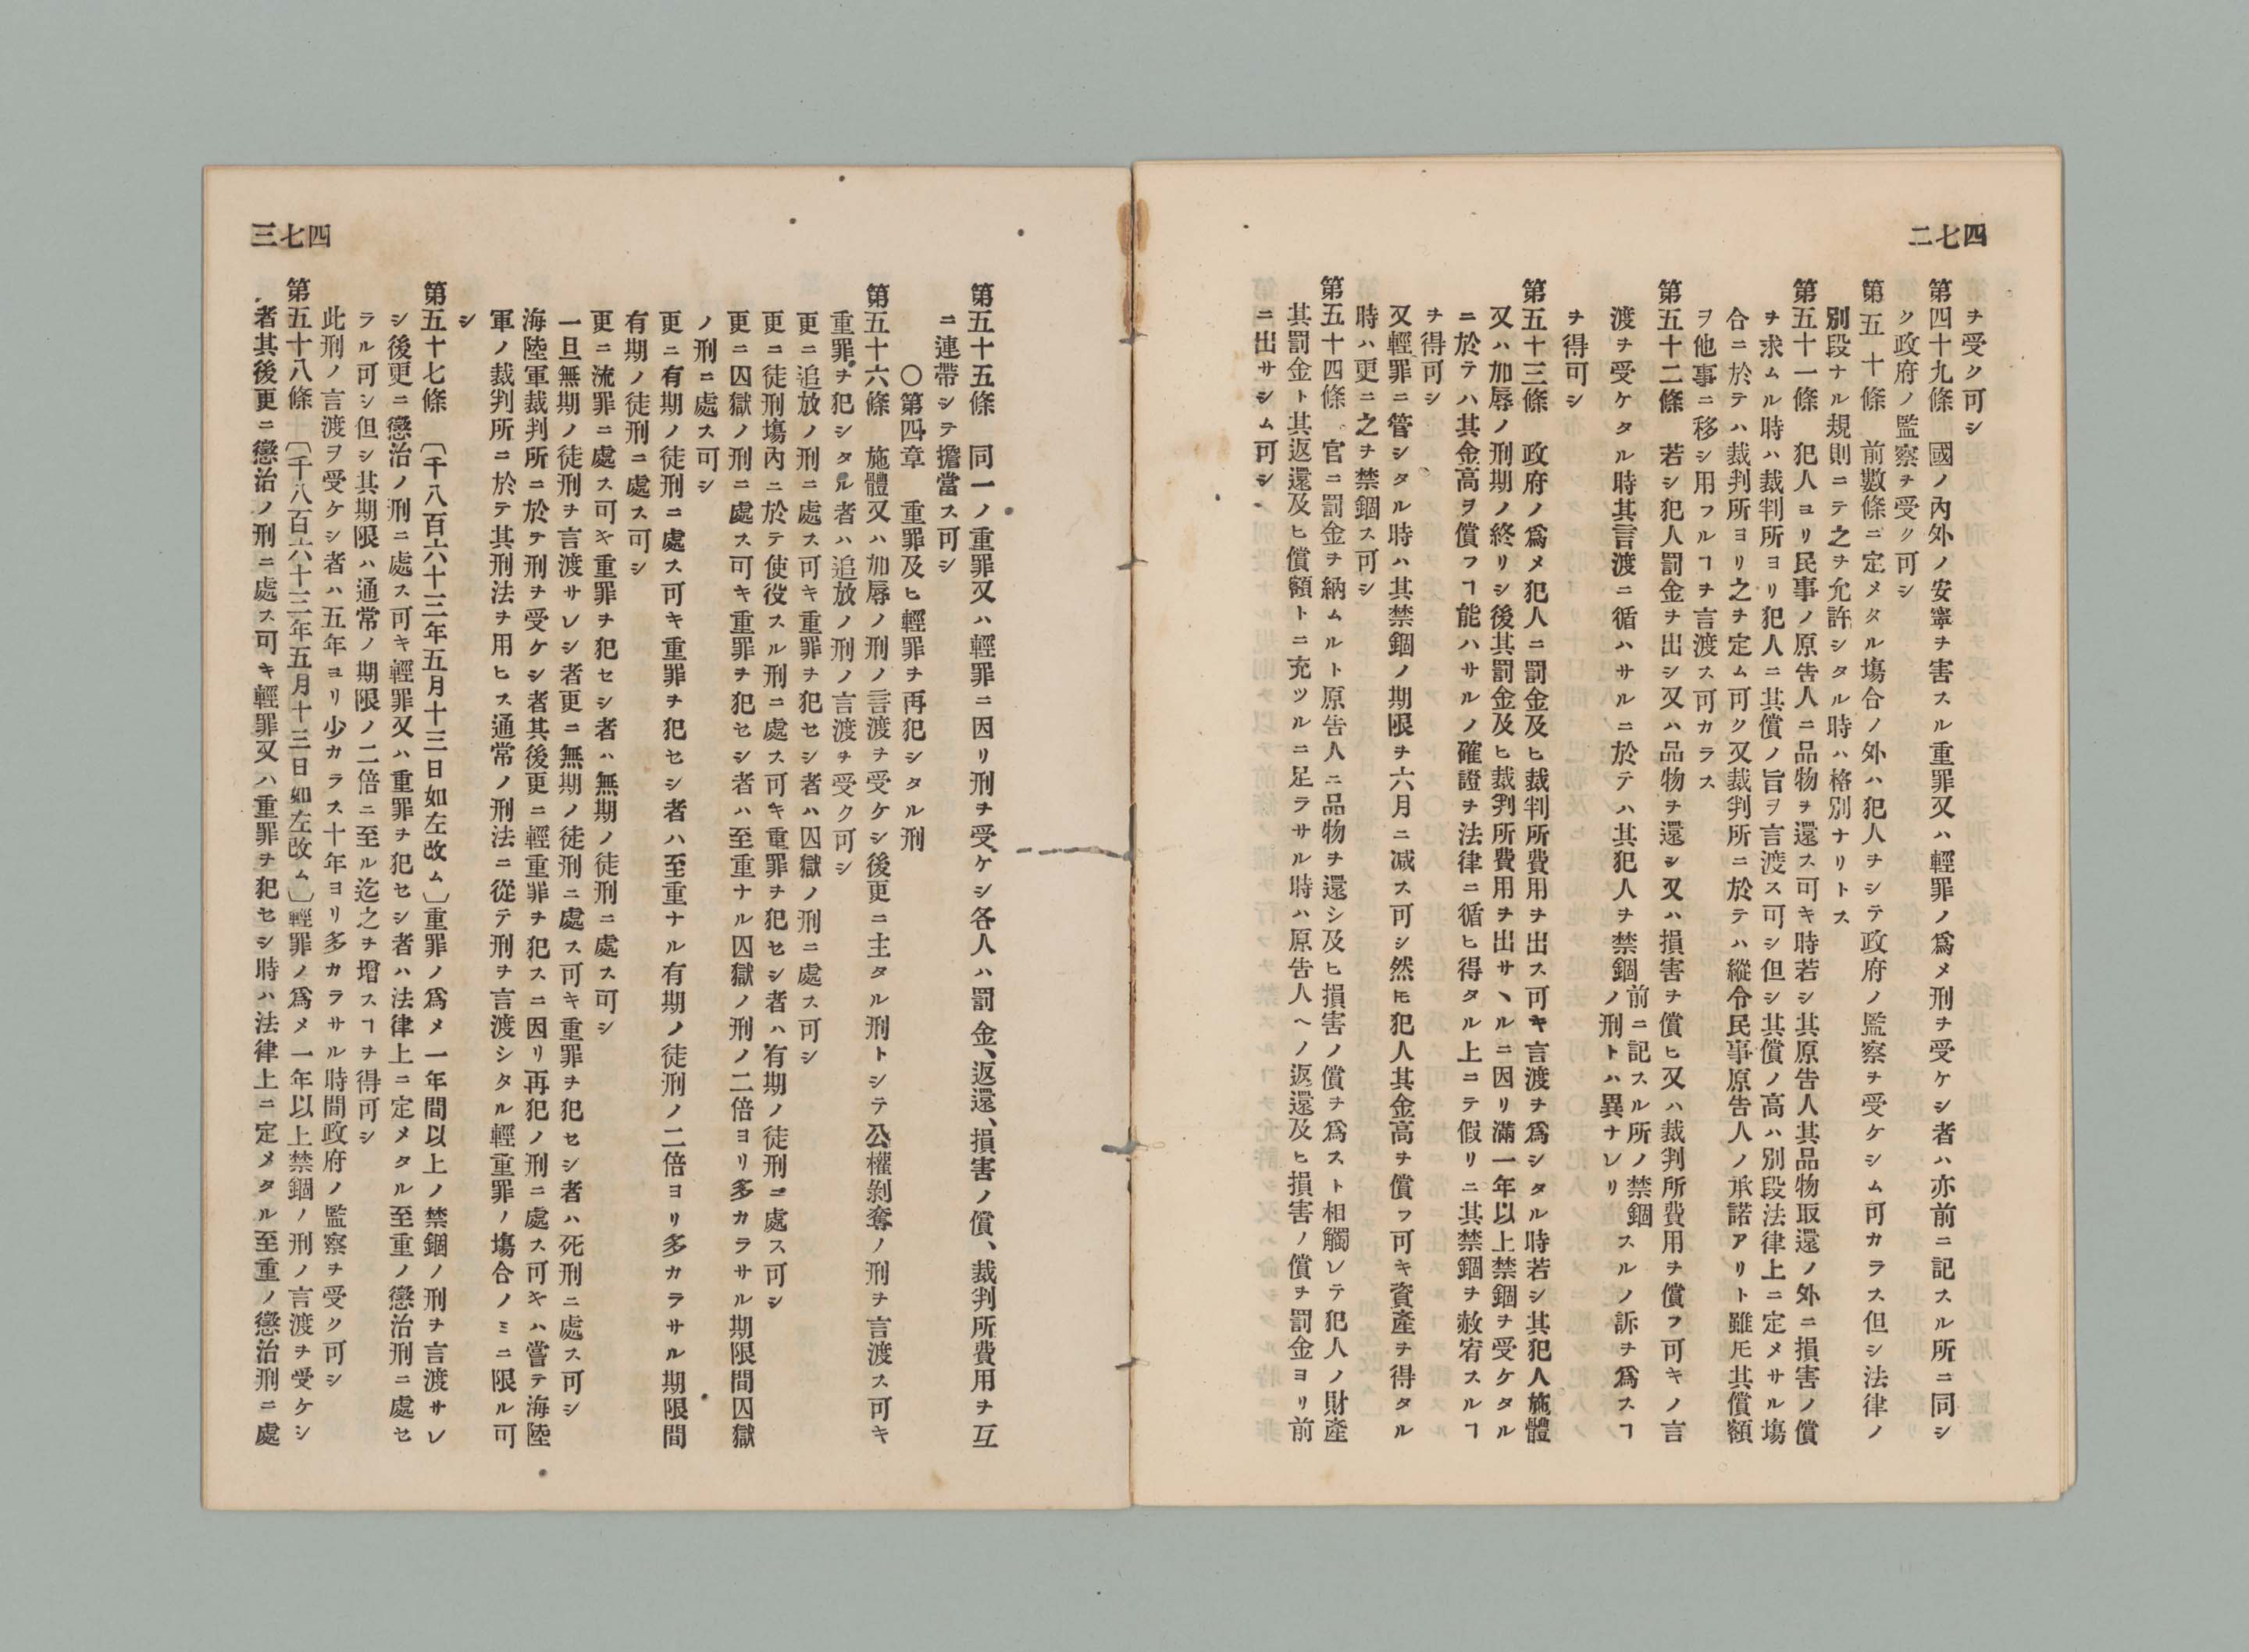 四七二
ヲ受ク可シ
第四十九條　國ノ內外ノ安寧ヲ害スル重罪又ハ輕罪ノ爲メ刑ヲ受ケシ者ハ亦前ニ記スル所ニ同シ
ク政府ノ監察ヲ受ク可シ
第五十條　前數條ニ定メタル塲合ノ外ハ犯人ヲシテ政府ノ監察ヲ受ケシム可カラス但シ法律ノ
別段ナル規則ニテ之ヲ允許シタル時ハ格別ナリトス
第五十一條　犯人ヨリ民事ノ原吿人ニ品物ヲ還ス可キ時若シ其原吿人其品物取還ノ外ニ損害ノ償
ヲ求ムル時ハ裁判所ヨリ犯人ニ其償ノ旨ヲ言渡ス可シ但シ其償ノ高ハ別段法律上ニ定メサル塲
合ニ於テハ裁判所ヨリ之ヲ定ム可ク又裁判所ニ於テハ縱令民事原吿人ノ承諾アリト雖𪜈其償額
ヲ他事ニ移シ用フルヿヲ言渡ス可カラス
第五十二條　若シ犯人罰金ヲ出シ又ハ品物ヲ還シ又ハ損害ヲ償ヒ又ハ裁判所費用ヲ償フ可キノ言
渡ヲ受ケタル時其言渡ニ循ハサルニ於テハ其犯人ヲ禁錮前ニ記スル所ノ禁錮ノ刑トハ異ナレリスルノ訴ヲ爲スヿ
ヲ得可シ
第五十三條　政府ノ爲メ犯人ニ罰金及ヒ裁判所費用ヲ出ス可キ言渡ヲ爲シタル時若シ其犯人施體
又ハ加辱ノ刑期ノ終リシ後其罰金及ヒ裁判所費用ヲ出サヽルニ因リ滿一年以上禁錮ヲ受ケタル
ニ於テハ其金高ヲ償フヿ能ハサルノ確證ヲ法律ニ循ヒ得タル上ニテ假リニ其禁錮ヲ赦宥スルヿ
ヲ得可シ
又輕罪ニ管シタル時ハ其禁錮ノ期限ヲ六月ニ減ス可シ然𪜈犯人其金高ヲ償フ可キ資產ヲ得タル
時ハ更ニ之ヲ禁錮ス可シ
第五十四條　官ニ罰金ヲ納ムルト原吿人ニ品物ヲ還シ及ヒ損害ノ償ヲ爲スト相觸レテ犯人ノ財產
其罰金ト其返還及ヒ償額トニ充ツルニ足ラサル時ハ原吿人ヘノ返還及ヒ損害ノ償ヲ罰金ヨリ前
ニ出サシム可シ
四七三
第五十五條　同一ノ重罪又ハ輕罪ニ因リ刑ヲ受ケシ各人ハ罰金、返還、損害ノ償、裁判所費用ヲ互
ニ連帶シテ擔當ス可シ
〇第四章　重罪及ヒ輕罪ヲ再犯シタル刑
第五十六條　施體又ハ加辱ノ刑ノ言渡ヲ受ケシ後更ニ主タル刑トシテ公權剝奪ノ刑ヲ言渡ス可キ
重罪ヲ犯シタル者ハ追放ノ刑ノ言渡ヲ受ク可シ
更ニ追放ノ刑ニ處ス可キ重罪ヲ犯セシ者ハ囚獄ノ刑ニ處ス可シ
更ニ徒刑塲內ニ於テ使役スル刑ニ處ス可キ重罪ヲ犯セシ者ハ有期ノ徒刑ニ處ス可シ
更ニ囚獄ノ刑ニ處ス可キ重罪ヲ犯セシ者ハ至重ナル囚獄ノ刑ノ二倍ヨリ多カラサル期限間囚獄
ノ刑ニ處ス可シ
更ニ有期ノ徒刑ニ處ス可キ重罪ヲ犯セシ者ハ至重ナル有期ノ徒刑ノ二倍ヨリ多カラサル期限間
有期ノ徒刑ニ處ス可シ
更ニ流罪ニ處ス可キ重罪ヲ犯セシ者ハ無期ノ徒刑ニ處ス可シ
一旦無期ノ徒刑ヲ言渡サレシ者更ニ無期ノ徒刑ニ處ス可キ重罪ヲ犯セシ者ハ死刑ニ處ス可シ
海陸軍裁判所ニ於テ刑ヲ受ケシ者其後更ニ輕重罪ヲ犯スニ因リ再犯ノ刑ニ處ス可キハ嘗テ海陸
軍ノ裁判所ニ於テ其刑法ヲ用ヒス通常ノ刑法ニ從テ刑ヲ言渡シタル輕重罪ノ塲合ノミニ限ル可
シ
第五十七條　〔千八百六十三年五月十三日如左改ム〕重罪ノ爲メ一年間以上ノ禁錮ノ刑ヲ言渡サレ
シ後更ニ懲治ノ刑ニ處ス可キ輕罪又ハ重罪ヲ犯セシ者ハ法律上ニ定メタル至重ノ懲治刑ニ處セ
ラル可シ但シ其期限ハ通常ノ期限ノ二倍ニ至ル迄之ヲ增スヿヲ得可シ
此刑ノ言渡ヲ受ケシ者ハ五年ヨリ少カラス十年ヨリ多カラサル時間政府ノ監察ヲ受ク可シ
第五十八條　〔千八百六十三年五月十三日如左改ム〕輕罪ノ爲メ一年以上禁錮ノ刑ノ言渡ヲ受ケシ
者其後更ニ懲治ノ刑ニ處ス可キ輕罪又ハ重罪ヲ犯セシ時ハ法律上ニ定メタル至重ノ懲治刑ニ處